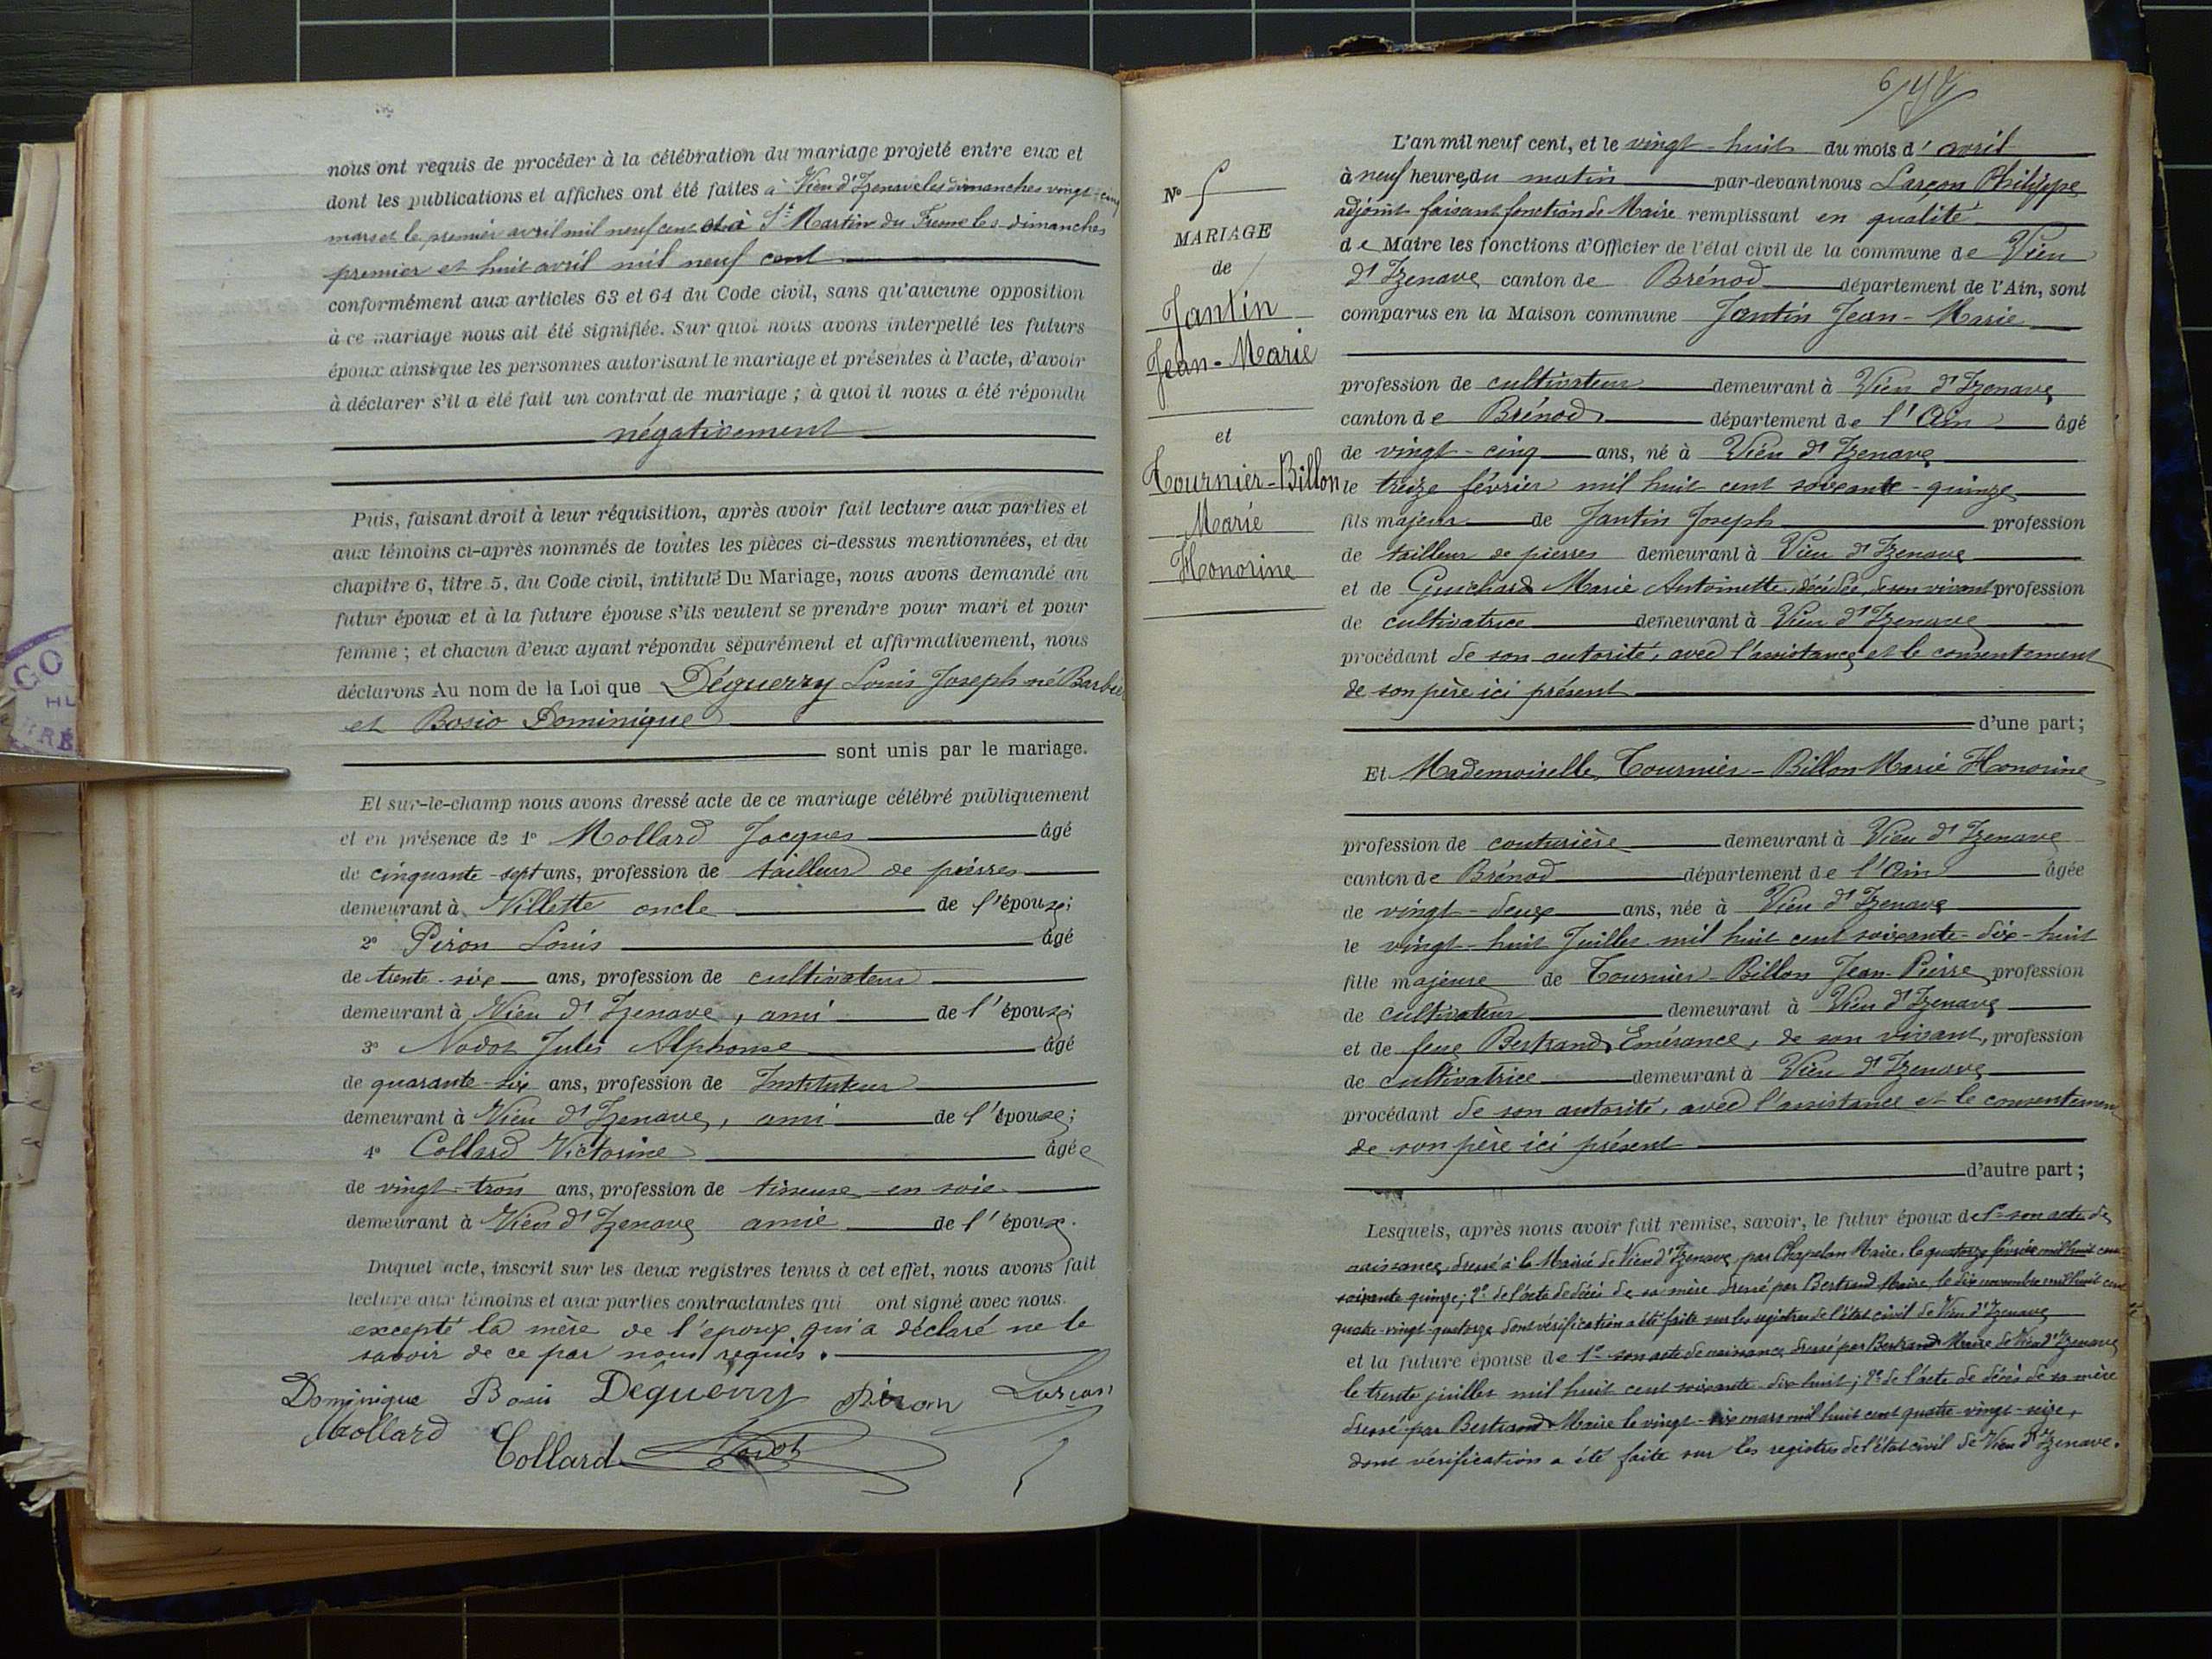 nous ont requis de procéder à la célébration du mariage projeté entre eux et
dont les publications et affiches ont été faites à Vieu d'Izenave les dimanches vingt-cinq
mars et le premier avril mil neuf cent et à St Martin du Fresne les dimanches
premier et huit avril mil neuf cent
conformément aux articles 63 et 64 du Code civil, sans qu'aucune opposition
à ce mariage nous ait été signifiée. Sur quoi nous avons interpellé les futurs
époux ainsi que les personnes autorisant le mariage et présentes à l'acte, d'avoir
à déclarer s'il a été fait un contrat de mariage ; à quoi il nous a été répondu
négativement
Puis, faisant droit à leur réquisition, après avoir fait lecture aux parties et
aux témoins ci-après nommés de toutes les pièces ci-dessus mentionnées, et du
chapitre 6, titre 5, du Code civil, intitulé Du Mariage, nous avons demandé au
futur époux et à la future épouse s'ils veulent se prendre pour mari et pour
femme ; et chacun d'eux ayant répondu séparément et affirmativement, nous
déclarons Au nom de la Loi que Déguerry Louis Joseph né Barbier
et Bosio Dominique
sont unis par le mariage.
Et sur-le-champ nous avons dressé acte de ce mariage célébré publiquement
et en présence de 1° Mollard Jacques âgé
de cinquante-sept ans, profession de tailleur de pierres
demeurant à Villette oncle de l'épouse;
2° Piron Louis âgé
de trente-six ans, profession de cultivateur
demeurant à Vieu d'Izenave, ami de l'épouse;
3° Nodot Jules Alphonse âgé
de quarante-six ans, profession de Instituteur
demeurant à Vieu d'Izenave, ami de l'épouse;
4° Collard Victorine âgée
de vingt-trois ans, profession de tisseuse en soie
demeurant à Vieu d'Izenave amie de l'épouse.
Duquel acte, inscrit sur les deux registres tenus à cet effet, nous avons fait
lecture aux témoins et aux parties contractantes qui ont signé avec nous.
excepté la mère de l'époux qui a déclaré ne le
savoir de ce par nous requis.
Dominique Bosio Deguerry Piron Larçon
Mollard
Collard Nodot
6
N° 5
MARIAGE
de
Jantin
Jean-Marie
et
Tournier-Billon
Marie
Honorine
L'an mil neuf cent, et le vingt-huit du mois d'avril
à neuf heures du matin par-devant nous Larçon Philippe
adjoint faisant fonction de Maire remplissant en qualité
de Maire les fonctions d'Officier de l'état civil de la commune de Vieu
d'Izenave canton de Brénod département de l'Ain, sont
comparus en la Maison commune Jantin Jean-Marie
profession de cultivateur demeurant à Vieu d'Izenave
canton de Brénod département de l'Ain âgé
de vingt-cinq ans, né à Vieu d'Izenave
le treize février mil huit cent soixante-quinze
fils majeur de Jantin Joseph profession
de tailleur de pierres demeurant à Vieu d'Izenave
et de Guichard Marie Antoinette, décédée, de son vivant profession
de cultivatrice demeurant à Vieu d'Izenave
procédant de son autorité, avec l'assistance et le consentement
de son père ici présent
d'une part;
Et Mademoiselle Tournier-Billon Marie Honorine
profession de couturière demeurant à Vieu d'Izenave
canton de Brénod département de l'Ain âgée
de vingt-deux ans, née à Vieu d'Izenave
le vingt-huit Juillet mil huit cent soixante-dix-huit
fille majeure de Tournier-Billon Jean-Pierre profession
de cultivateur demeurant à Vieu d'Izenave
et de feue Bertrand Emérance, de son vivant, profession
de cultivatrice demeurant à Vieu d'Izenave
procédant de son autorité, avec l'assistance et le consentement
de son père ici présent
d'autre part;
Lesquels, après nous avoir fait remise, savoir, le futur époux de 1° son acte de
naissance dressé à la Mairie de Vieu d'Izenave, par Chapelan Maire, le quatorze février mil huit cent
soixante quinze; 2° de l'acte de décès de sa mère dressé par Bertrand Maire, le dix novembre mil huit cent
quatre-vingt-quatorze dont vérification a été faite sur les registres de l'état civil de Vieu d'Izenave
et la future épouse de 1° son acte de naissance dressé par Bertrand Maire de Vieu d'Izenave
le trente juillet mil huit cent soixante-dix-huit; 2° de l'acte de décès de sa mère
dressé par Bertrand Maire le vingt-six mars mil huit cent quatre-vingt-seize,
dont vérification a été faite sur les registres de l'état civil de Vieu d'Izenave.